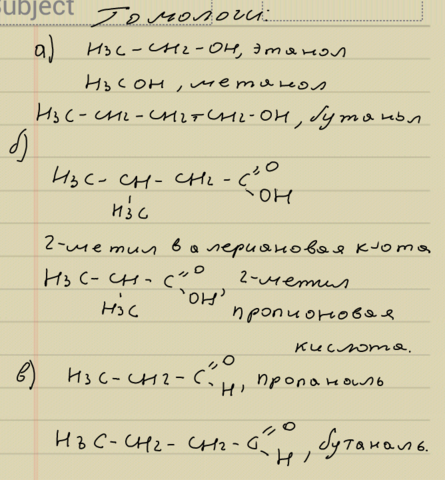 Subject
Гомологи:
а) H3C-CH2-OH, этанол
H3COH, метанол
H3C-CH2-CH2-CH2-OH, бутанол
б)
H3C-CH-CH2-C=O
OH
H3C
2-метил валериановая к-та
H3C-CH-C=O
OH, 2-метил
H3C
пропионовая
кислота.
в) H3C-CH2-C=O
H, пропаналь
H3C-CH2-CH2-C=O
H, бутаналь.